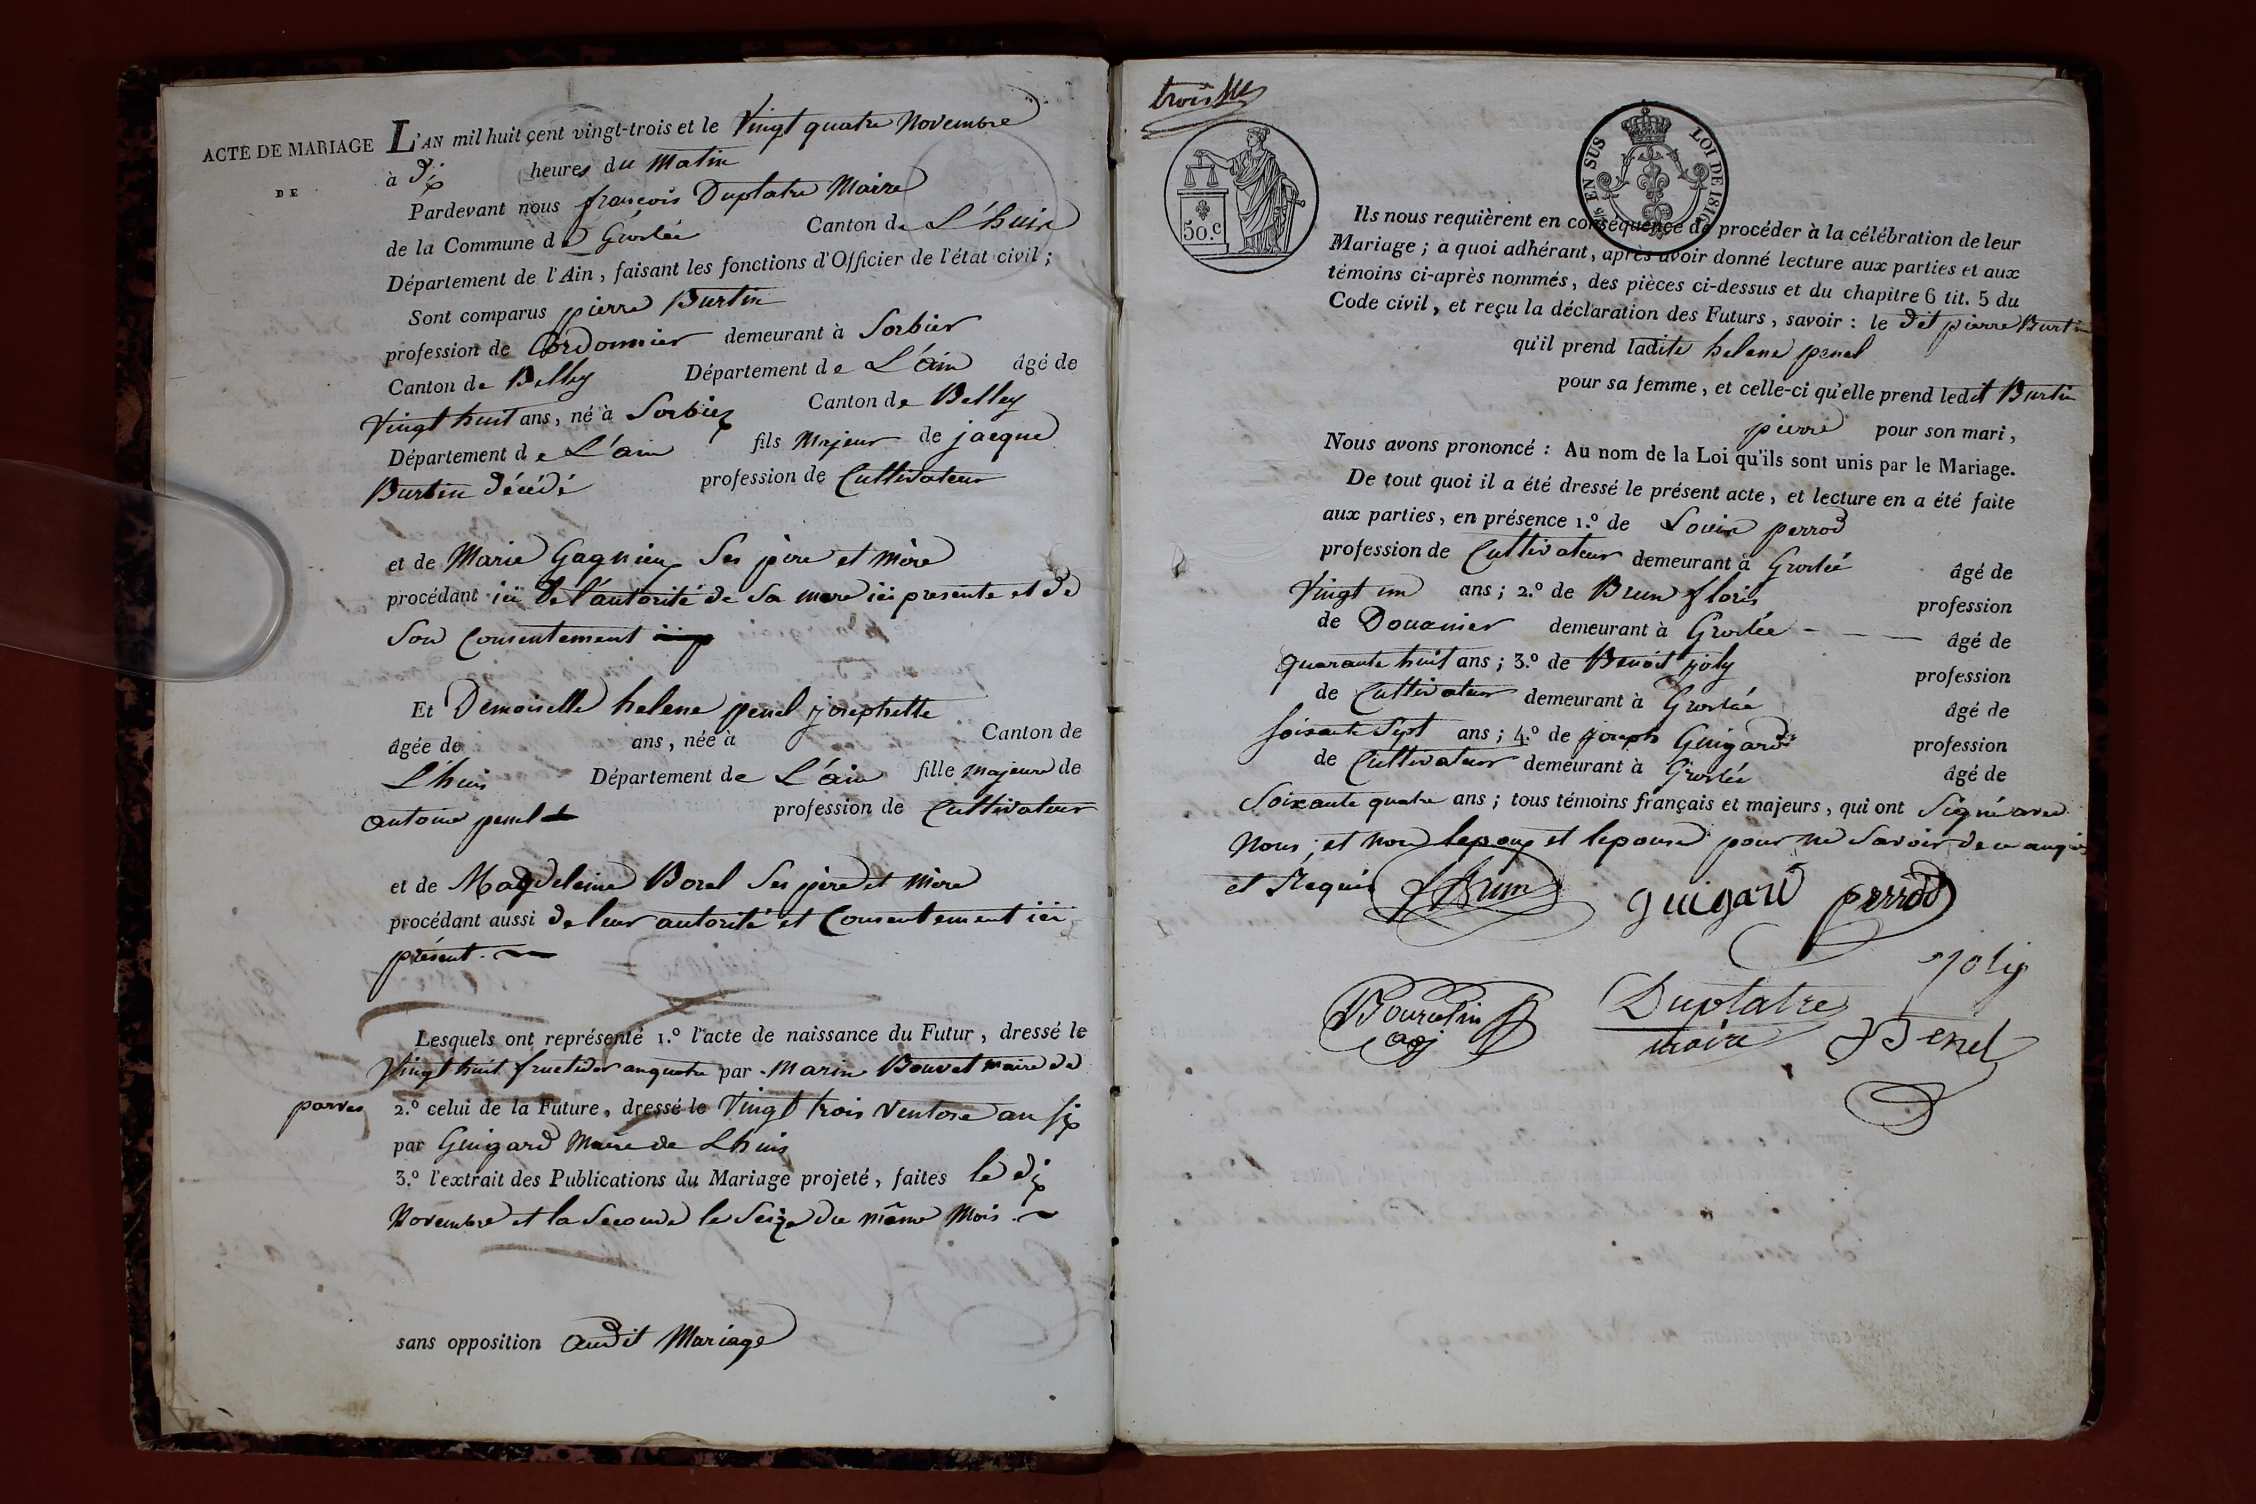 ACTE DE MARIAGE
DE
L'AN mil huit çent vingt-trois et le Vingt quatre Novembre
à dix heures du Matin
Pardevant nous françois Duplatre Maire
de la Commune de Groslée Canton de L'huis
Département de l'Ain, faisant les fonctions d'Officier de l'état civil;
Sont comparus pierre Burtin
profession de Cordonnier demeurant à Sorbier
Canton de Belley Département de L'ain âgé de
Vingt huit ans, né à Sorbier Canton de Belley
Département de L'ain fils Majeur de jacque
Burtin décédé profession de Cultivateur
et de Marie Gagnieux Ses père et mère
procédant ici De l'autorité de Sa mere ici presente et de
Son Consentement
Et Demoiselle helene penel josephette
âgée de ans, née à Canton de
L'huis Département de L'ain fille Majeure de
antoine penel profession de Cultivateur
et de Magdeleine Borel Ses père et Mère
procédant aussi de leur autorité et Consentement ici
présent.
Lesquels ont représenté 1.º l'acte de naissance du Futur, dressé le
Vingt huit fructidor an quatre par Marin Bouvet maire de
parves
2.º celui de la Future, dressé le Vingt trois Ventose an six
par Guigard Maire de Lhuis
3.º l'extrait des Publications du Mariage projeté, faites le dix
Novembre et la Seconde le Seize du même Mois
sans opposition audit Mariage
trois
50.c
EN SUS LOI DE 1816
Ils nous requièrent en conséquence de procéder à la célébration de leur
Mariage; à quoi adhérant, après avoir donné lecture aux parties et aux
témoins ci-après nommés, des pièces ci-dessus et du chapitre 6 tit. 5 du
Code civil, et reçu la déclaration des Futurs, savoir: le dit pierre Burtin
qu'il prend ladite helene penel
pour sa femme, et celle-ci qu'elle prend ledit Burtin
pierre pour son mari,
Nous avons prononcé: Au nom de la Loi qu'ils sont unis par le Mariage.
De tout quoi il a été dressé le présent acte, et lecture en a été faite
aux parties, en présence 1.º de Louis perrod
profession de Cultivateur demeurant à Groslée âgé de
Vingt un ans; 2.º de Brun floris profession
de Douanier demeurant à Groslée âgé de
quarante huit ans; 3.º de Benoit joly profession
de Cultivateur demeurant à Groslée âgé de
Soixante Sept ans; 4.º de joseph Guigard profession
de Cultivateur demeurant à Groslée âgé de
Soixante quatre ans; tous témoins français et majeurs, qui ont Signé avec
Nous, et non lepoux et lepouse pour ne Savoir de ce enquis
et Requis
fBrun guigard perrod
joly
adj Duplatre
maire penel